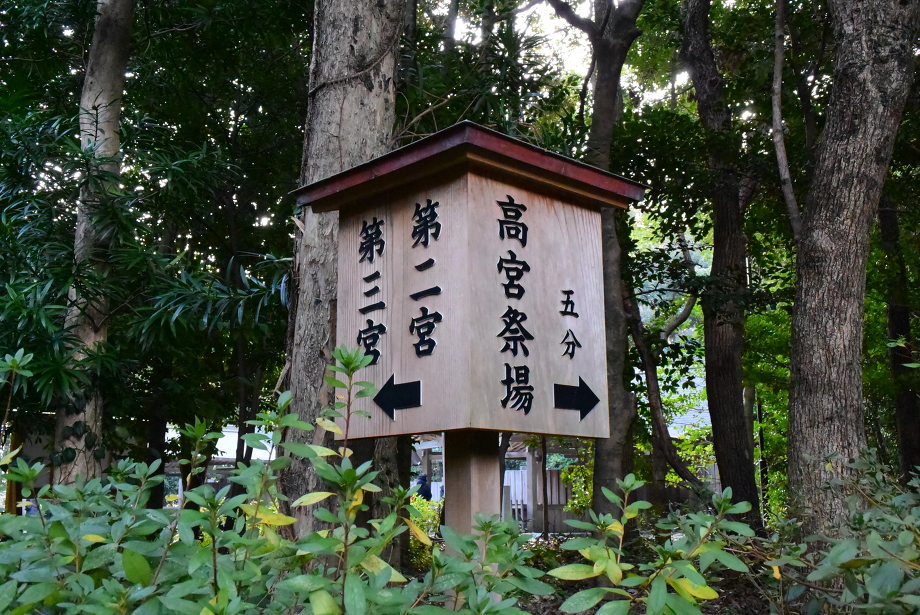 高宮祭場
五分
第二宮
第三宮